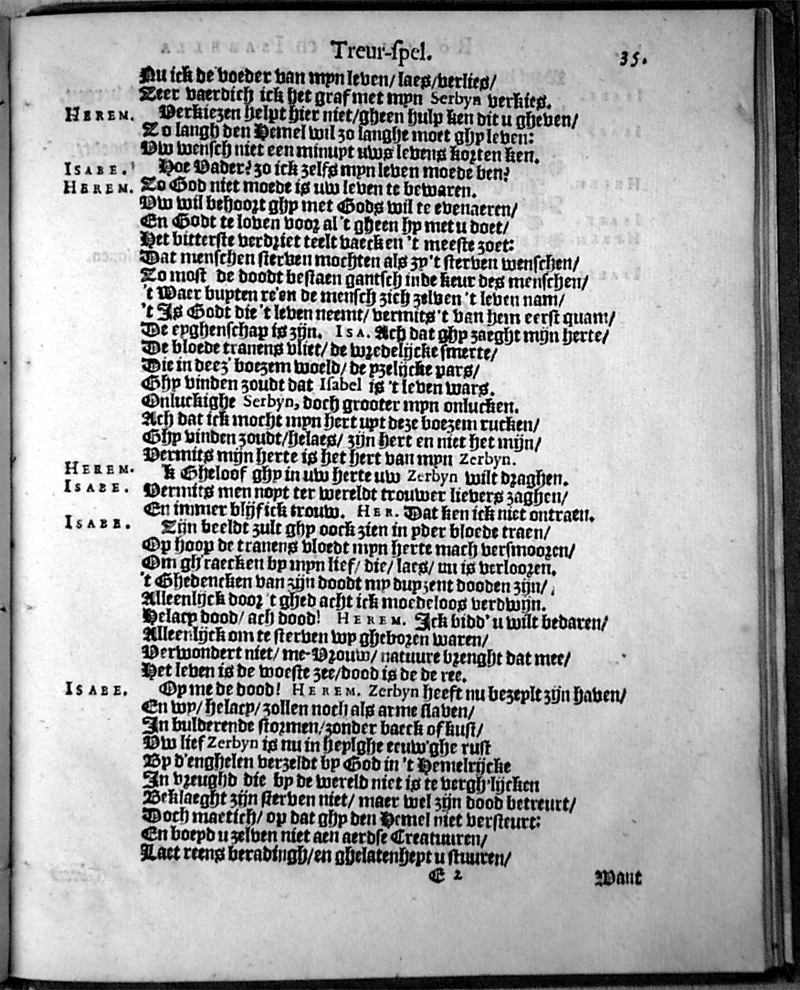 Treur-spel. 35.
Nu ick de voeder van myn leven/ laes/verlies/
Zeer vaerdich ick het graf met myn Serbyn verkies.
HEREM. Verkiezen helpt hier niet/gheen hulp ken dit u gheven/
Zo langh den Hemel wil zo langhe moet ghy leven:
Uw wensch niet een minuyt uws levens korten ken.
ISABE. Hoe Vader? zo ick zelfs myn leven moede ben?
HEREM. Zo God niet moede is uw leven te bewaren.
Uw wil behoort ghy met Gods wil te evenaeren/
En Godt te loven voor al 't gheen hy met u doet/
Het bitterste verdriet teelt vaeck en 't meeste zoet:
Dat menschen sterven mochten als zy 't sterven wenschen/
Zo most de doodt bestaen gantsch inde keur des menschen/
't Waer buyten re'en de mensch zich zelven 't leven nam/
't Is Godt die 't leven neemt/ vermits 't van hem eerst quam/
De eyghenschap is zijn. ISA. Ach dat ghy zaeght mijn herte/
De bloede tranens vliet/ de wredelijcke smerte/
Die in deez' boezem woeld/ de yzelijcke pars/
Ghy vinden zoudt dat Isabel is 't leven wars.
Onluckighe Serbyn, doch grooter myn onlucken.
Ach dat ick mocht myn hert uyt deze boezem rucken/
Ghy vinden zoudt/helaes/ zijn hert en niet het mijn/
Vermits mijn herte is het hert van myn Zerbyn.
HEREM. 'k Gheloof ghy in uw herte uw Zerbyn wilt draghen.
ISABE. Vermits men noyt ter wereldt trouwer lievers zaghen/
En immer blijf ick trouw. HER. Dat ken ick niet ontraen.
ISABE. Zijn beeldt zult ghy oock zien in yder bloede traen/
Op hoop de tranens vloedt myn herte mach versmooren/
Om gh'raecken by myn lief/ die/ laes/ nu is verlooren.
't Ghedencken van zijn doodt my duyzent dooden zijn/
Alleenlijck door 't ghedacht ick moedeloos verdwijn.
Helacy dood/ ach dood! HEREM. Ick bidd' u wilt bedaren/
Alleenlijck om te sterven wy gheboren waren/
Verwondert niet/ me-Vrouw/ natuure brenght dat mee/
Het leven is de woeste zee/dood is de de ree.
ISABE. Op me de dood! HEREM. Zerbyn heeft nu bezeylt zijn haven/
En wy/ helacy/ zollen noch als arme slaven/
In bulderende stormen/zonder baeck of kust/
Uw lief Zerbyn is nu in heylghe eeuw'ghe rust
By d'enghelen verzeldt by God in 't Hemelrijcke
In vreughd die by de wereld niet is te vergh'lijcken
Beklaeght zijn sterven niet/ maer wel zijn dood betreurt/
Doch maetich/ op dat ghy den Hemel niet versteurt:
En boeyd u zelven niet aen aerdse Creatuuren/
Laet reens beradingh/en ghelatenheyt u stuuren/
E 2 Want